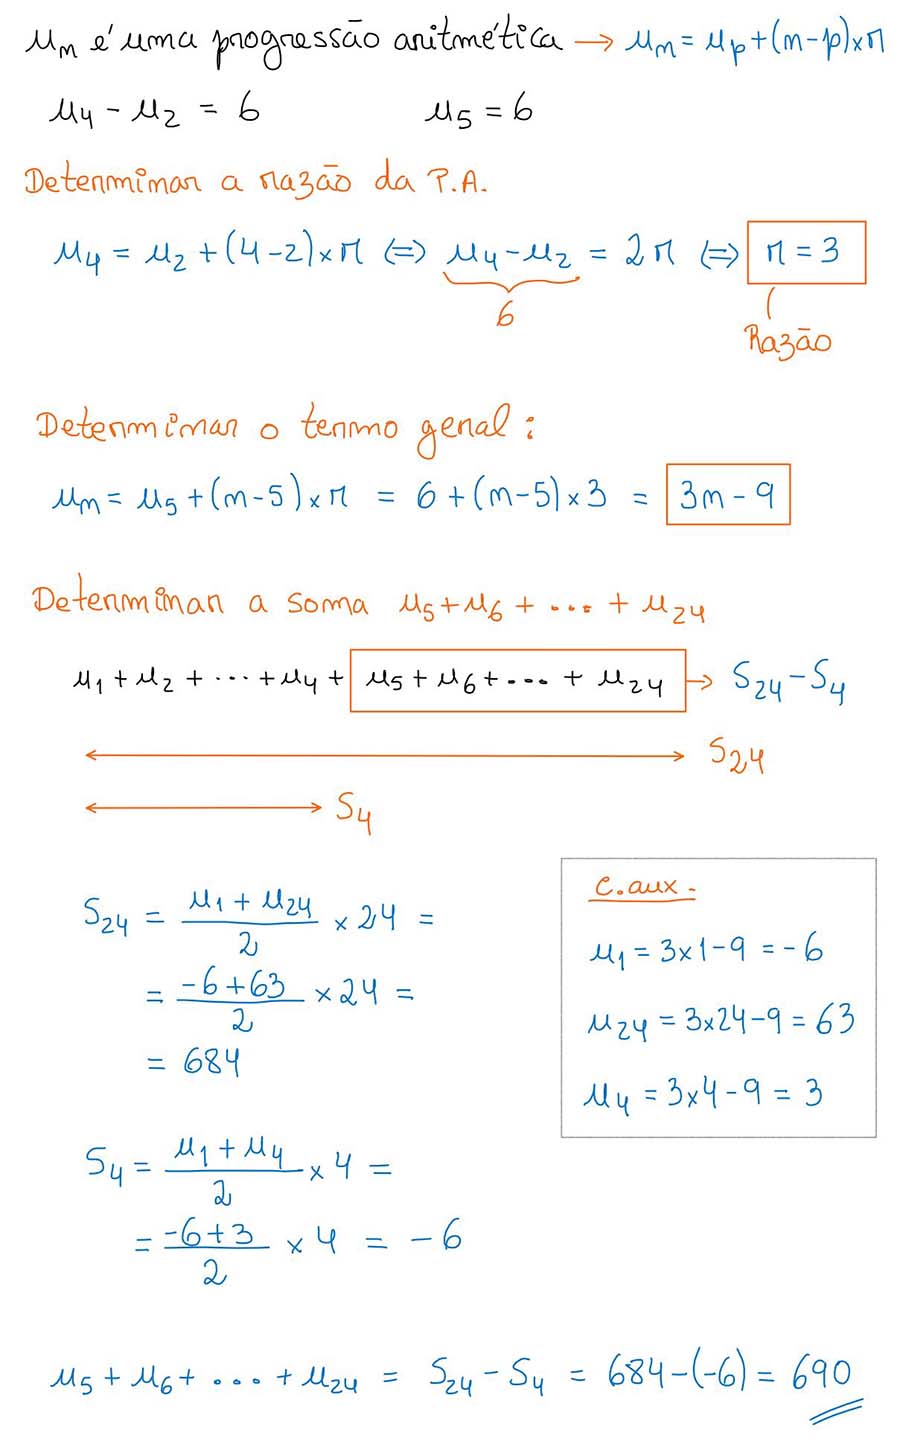 uₙ é uma progressão aritmética → uₙ = uₚ + (n-p)×r
u₄ - u₂ = 6 u₅ = 6
Determinar a razão da P.A.
u₄ = u₂ + (4-2)×r ⇔ u₄ - u₂ = 2r ⇔ r = 3
6
Razão
Determinar o termo geral:
uₙ = u₅ + (n-5)×r = 6 + (n-5)×3 = 3n - 9
Determinar a soma u₅ + u₆ + ... + u₂₄
u₁ + u₂ + ... + u₄ + u₅ + u₆ + ... + u₂₄ → S₂₄ - S₄
S₂₄
S₄
S₂₄ = (u₁ + u₂₄)/2 × 24 =
= (-6+63)/2 × 24 =
= 684
C.aux.
u₁ = 3×1-9 = -6
u₂₄ = 3×24-9 = 63
u₄ = 3×4-9 = 3
S₄ = (u₁ + u₄)/2 × 4 =
= (-6+3)/2 × 4 = -6
u₅ + u₆ + ... + u₂₄ = S₂₄ - S₄ = 684-(-6) = 690